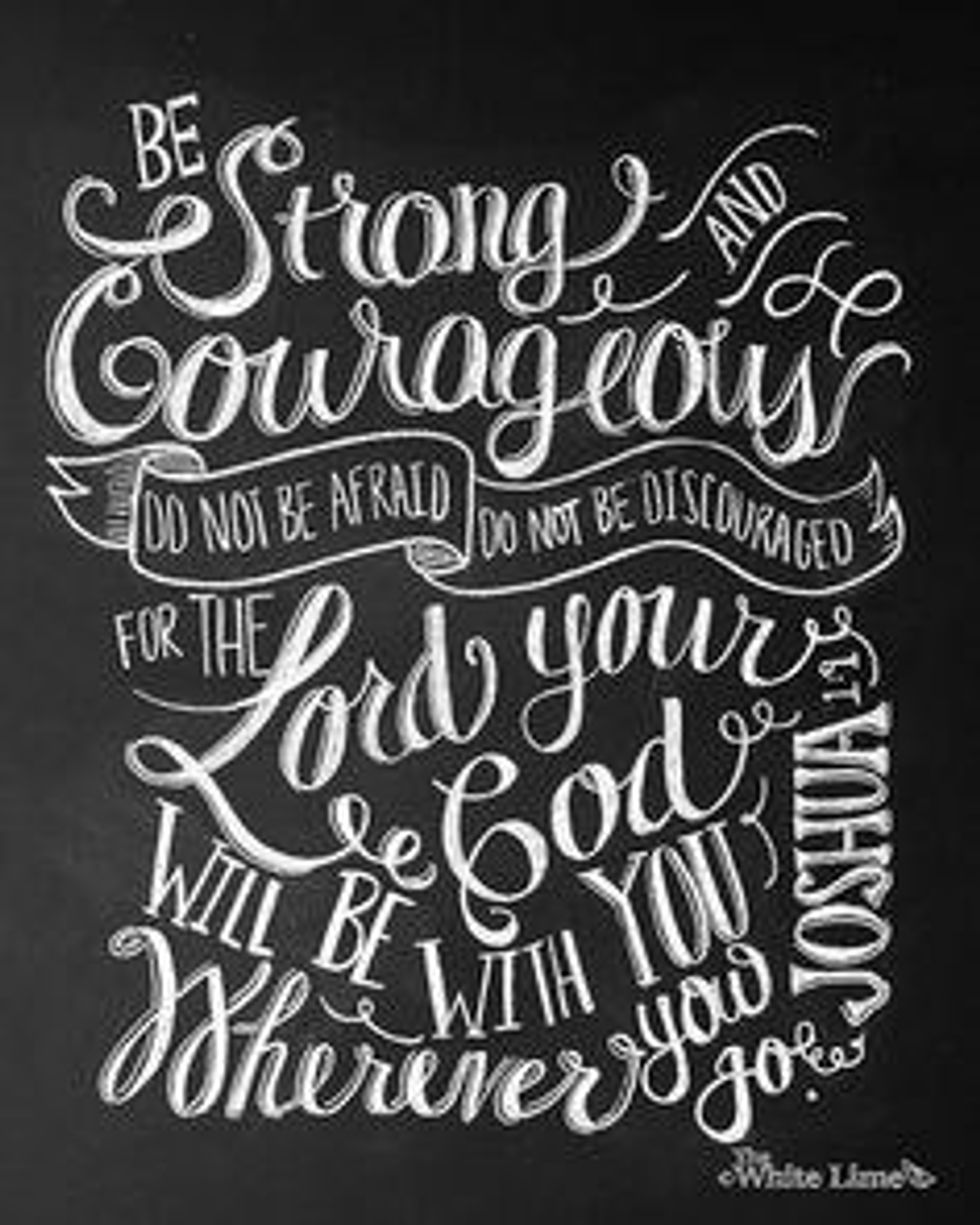 BE
Strong AND
Courageous
DO NOT BE AFRAID DO NOT BE DISCOURAGED
FOR THE Lord your
God
WILL BE WITH YOU
Wherever you
go.
JOSHUA 1:9
The
White Lime